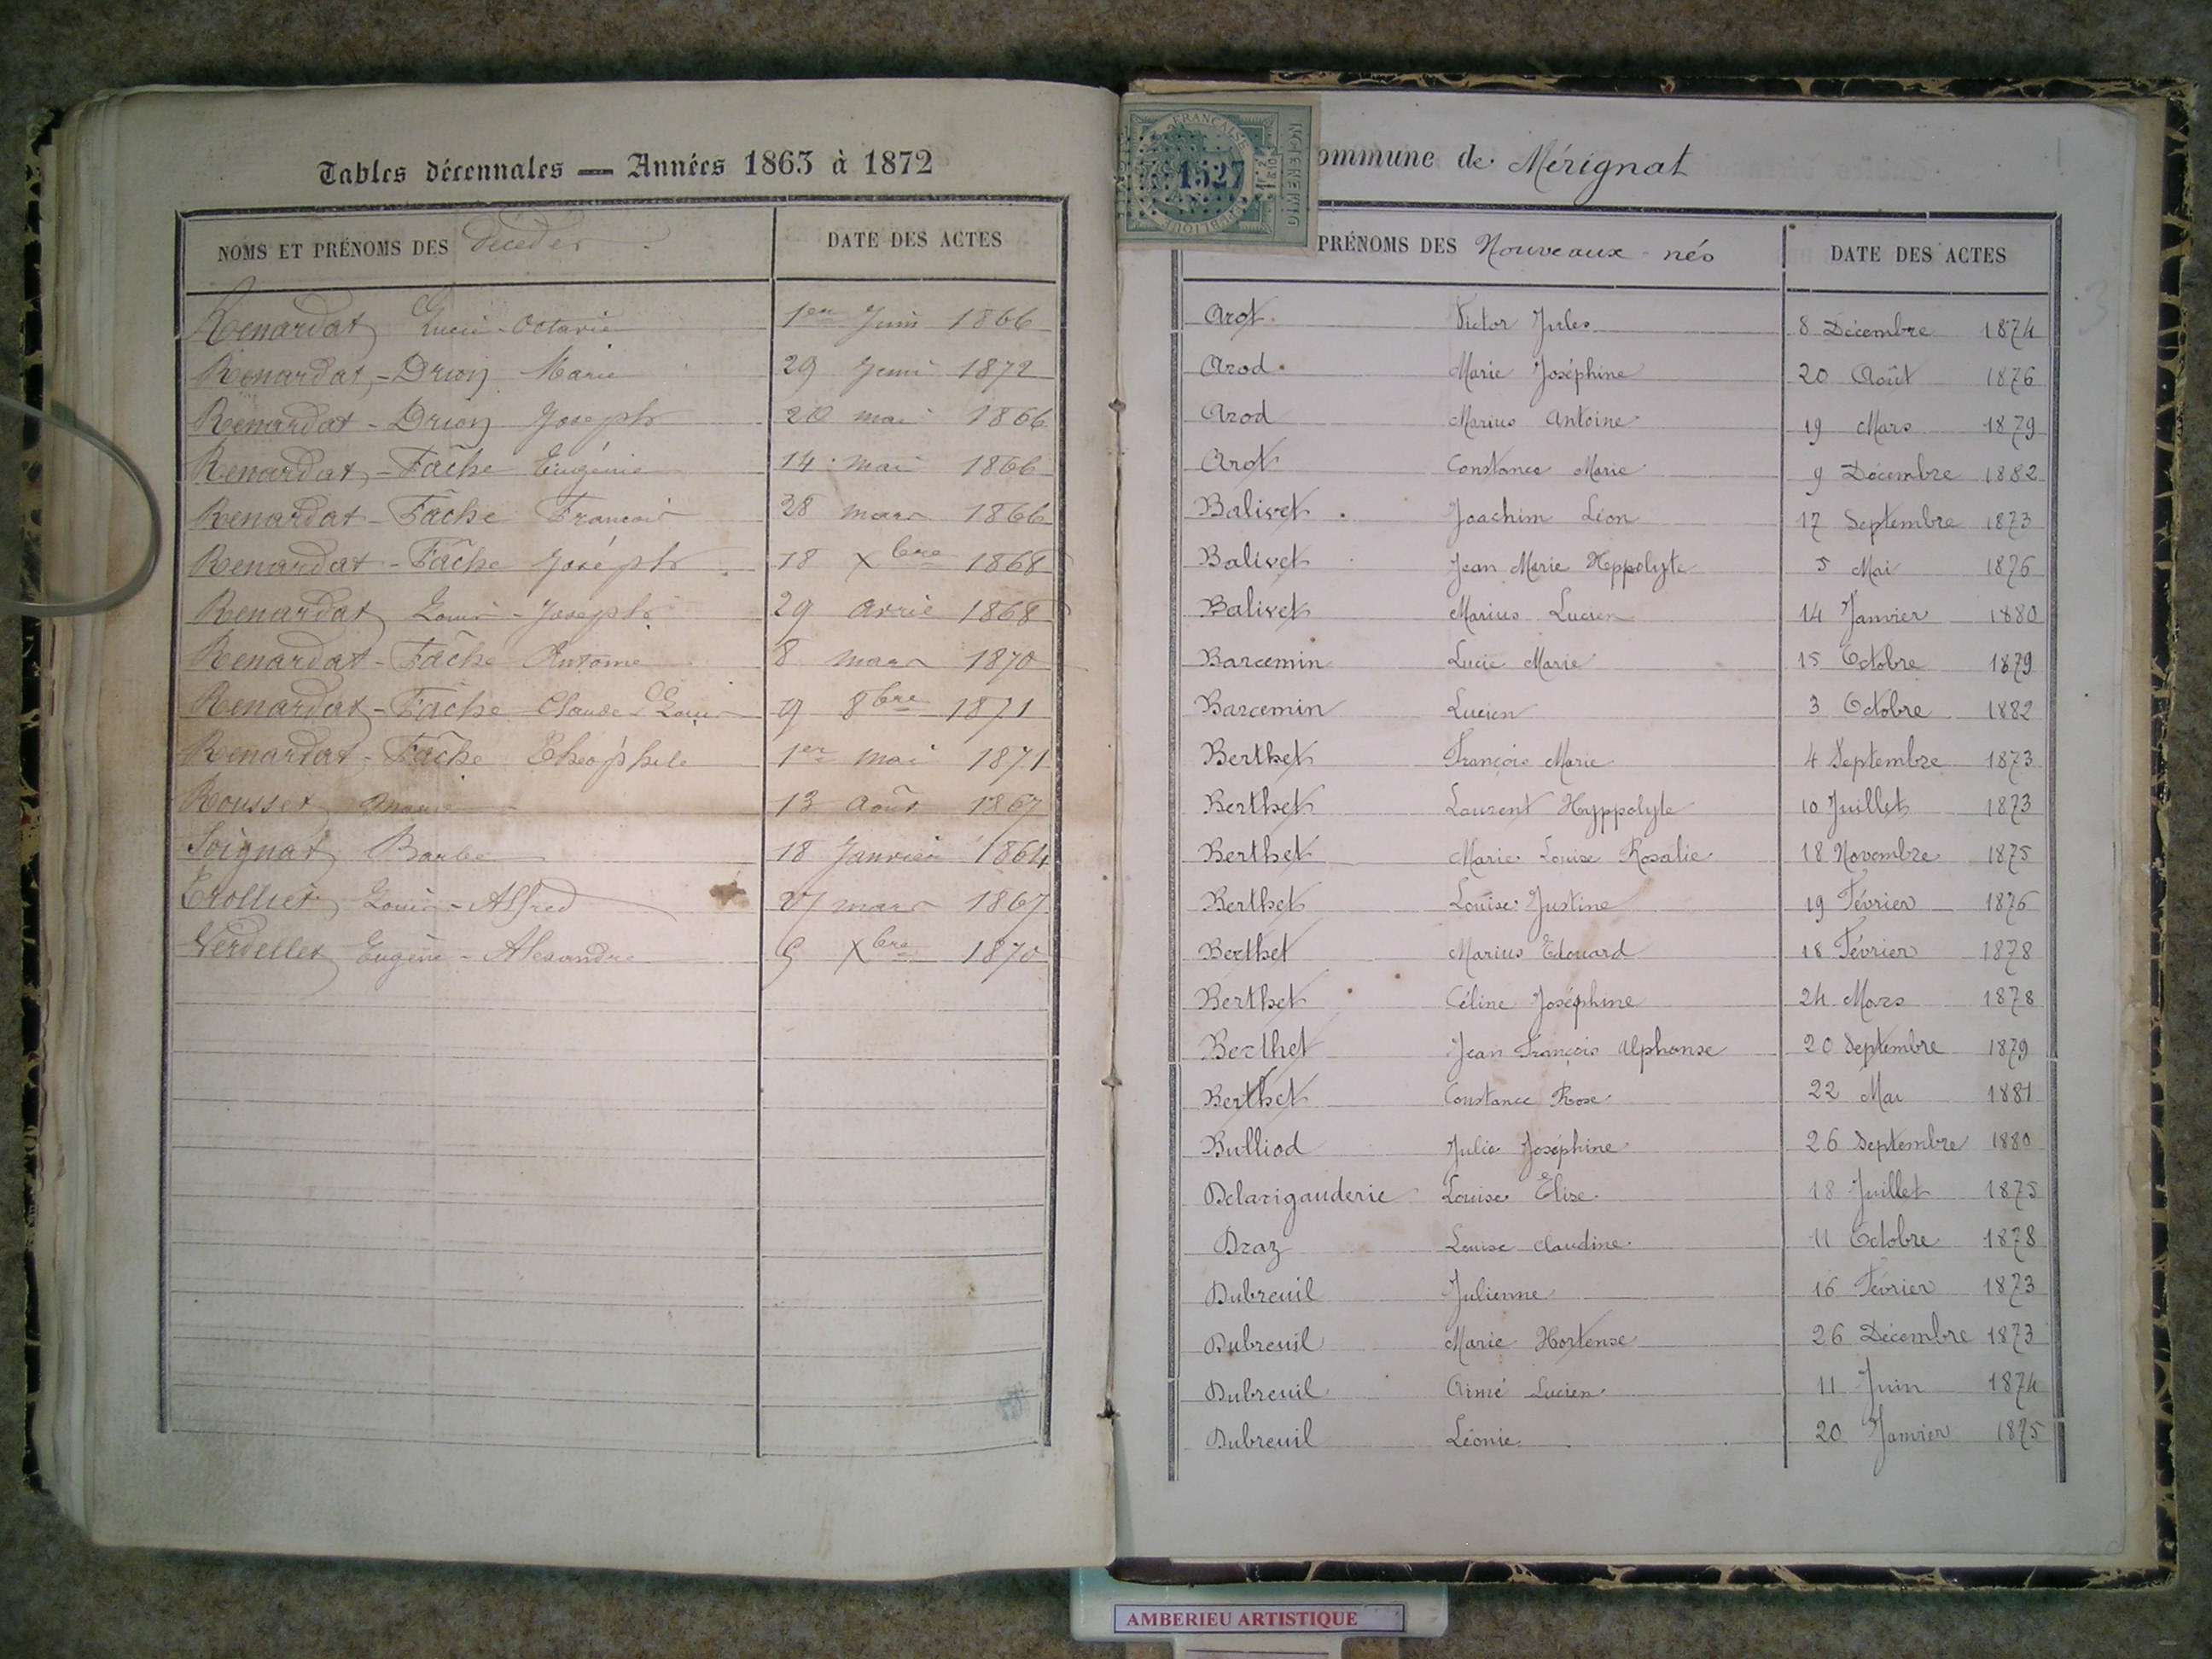 Tables décennales — Années 1863 à 1872
NOMS ET PRÉNOMS DES Décédés
DATE DES ACTES
Renardat Lucie-Octavie 1er Juin 1866
Renardat-Drion Marie 29 Juin 1872
Renardat-Drion Joseph 20 mai 1866
Renardat-Fâche Eugénie 14 mai 1866
Renardat-Fâche François 28 mars 1866
Renardat-Fâche Joséph 18 Xbre 1868
Renardat Louis-Joseph 29 avril 1868
Renardat-Fâche Antoine 8 mars 1870
Renardat-Fâche Claude-Louis 9 8bre 1871
Renardat-Fâche Théophile 1er mai 1871
Rousset 13 août 1867
Soignat Barbe 18 Janvier 1864
Trolliet Louis-Alfred 27 mars 1867
Verdellet Eugène-Alexandre 5 Xbre 1870
FRANÇAISE
1527
ommune de Mérignat
PRÉNOMS DES Nouveaux-nés
DATE DES ACTES
Arot Victor Jules 8 Décembre 1874
Arod Marie Joséphine 20 Août 1876
Arod Marius Antoine 19 Mars 1879
Arot Constance Marie 9 Décembre 1882
Balivet Joachim Léon 17 Septembre 1873
Balivet Jean Marie Hyppolyte 5 Mai 1876
Balivet Marius Lucien 14 Janvier 1880
Barcemin Lucie Marie 15 Octobre 1879
Barcemin Lucien 3 Octobre 1882
Berthet François Marie 4 Septembre 1873
Berthet Laurent Hyppolyte 10 Juillet 1873
Berthet Marie Louise Rosalie 18 Novembre 1875
Berthet Louise Justine 19 Février 1876
Berthet Marius Edouard 18 Février 1878
Berthet Céline Joséphine 24 Mars 1878
Berthet Jean François Alphonse 20 Septembre 1879
Berthet Constance Rose 22 Mai 1881
Bulliod Julie Joséphine 26 Septembre 1880
Delarigauderie Louise Élise 18 Juillet 1875
Draz Louise Claudine 11 Octobre 1878
Dubreuil Julienne 16 Février 1873
Dubreuil Marie Hortense 26 Décembre 1873
Dubreuil Aimé Lucien 11 Juin 1874
Dubreuil Léonie 20 Janvier 1875
AMBERIEU ARTISTIQUE